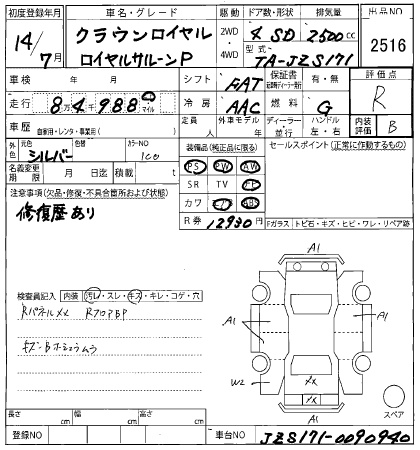 初度登録年月 車名・グレード 駆動 ドア数・形状 排気量 出品NO
14/7月 クラウンロイヤル ロイヤルサルーンP 2WD・4WD 4 SD 2500cc 2516
型式 TA-JZS171
車検 年 月 シフト FAT 保証書 有・無 評価点
走行 8万4988 マイル 冷房 AAC 燃料 G R
車歴 自家用・レンタ・事業用( ) 定員 人 外車モデル 年 ディーラー・並行 ハンドル 左・右 内装評価 B
外色 元色 シルバー 色替 カラーNO 1C0
装備品(純正品に限る) セールスポイント(正常に作動するもの)
名義変更期限 月 日迄 積載 t
PS PW AW
SR TV
カワ
R券 12930円
注意事項(欠品・修復・不具合箇所および状態)
修復歴あり
Fガラス トビ石・キズ・ヒビ・ワレ・リペア跡
検査員記入 内装 汚れ・スレ・キズ・キレ・コゲ・穴
RパネルXX RフロアBP
キズ・Bホシュウムラ
A1
A1
A1
W2
XX
XX
A1
スペア
長さ cm 幅 cm 高さ cm
登録NO 車台NO JZS171-0090940